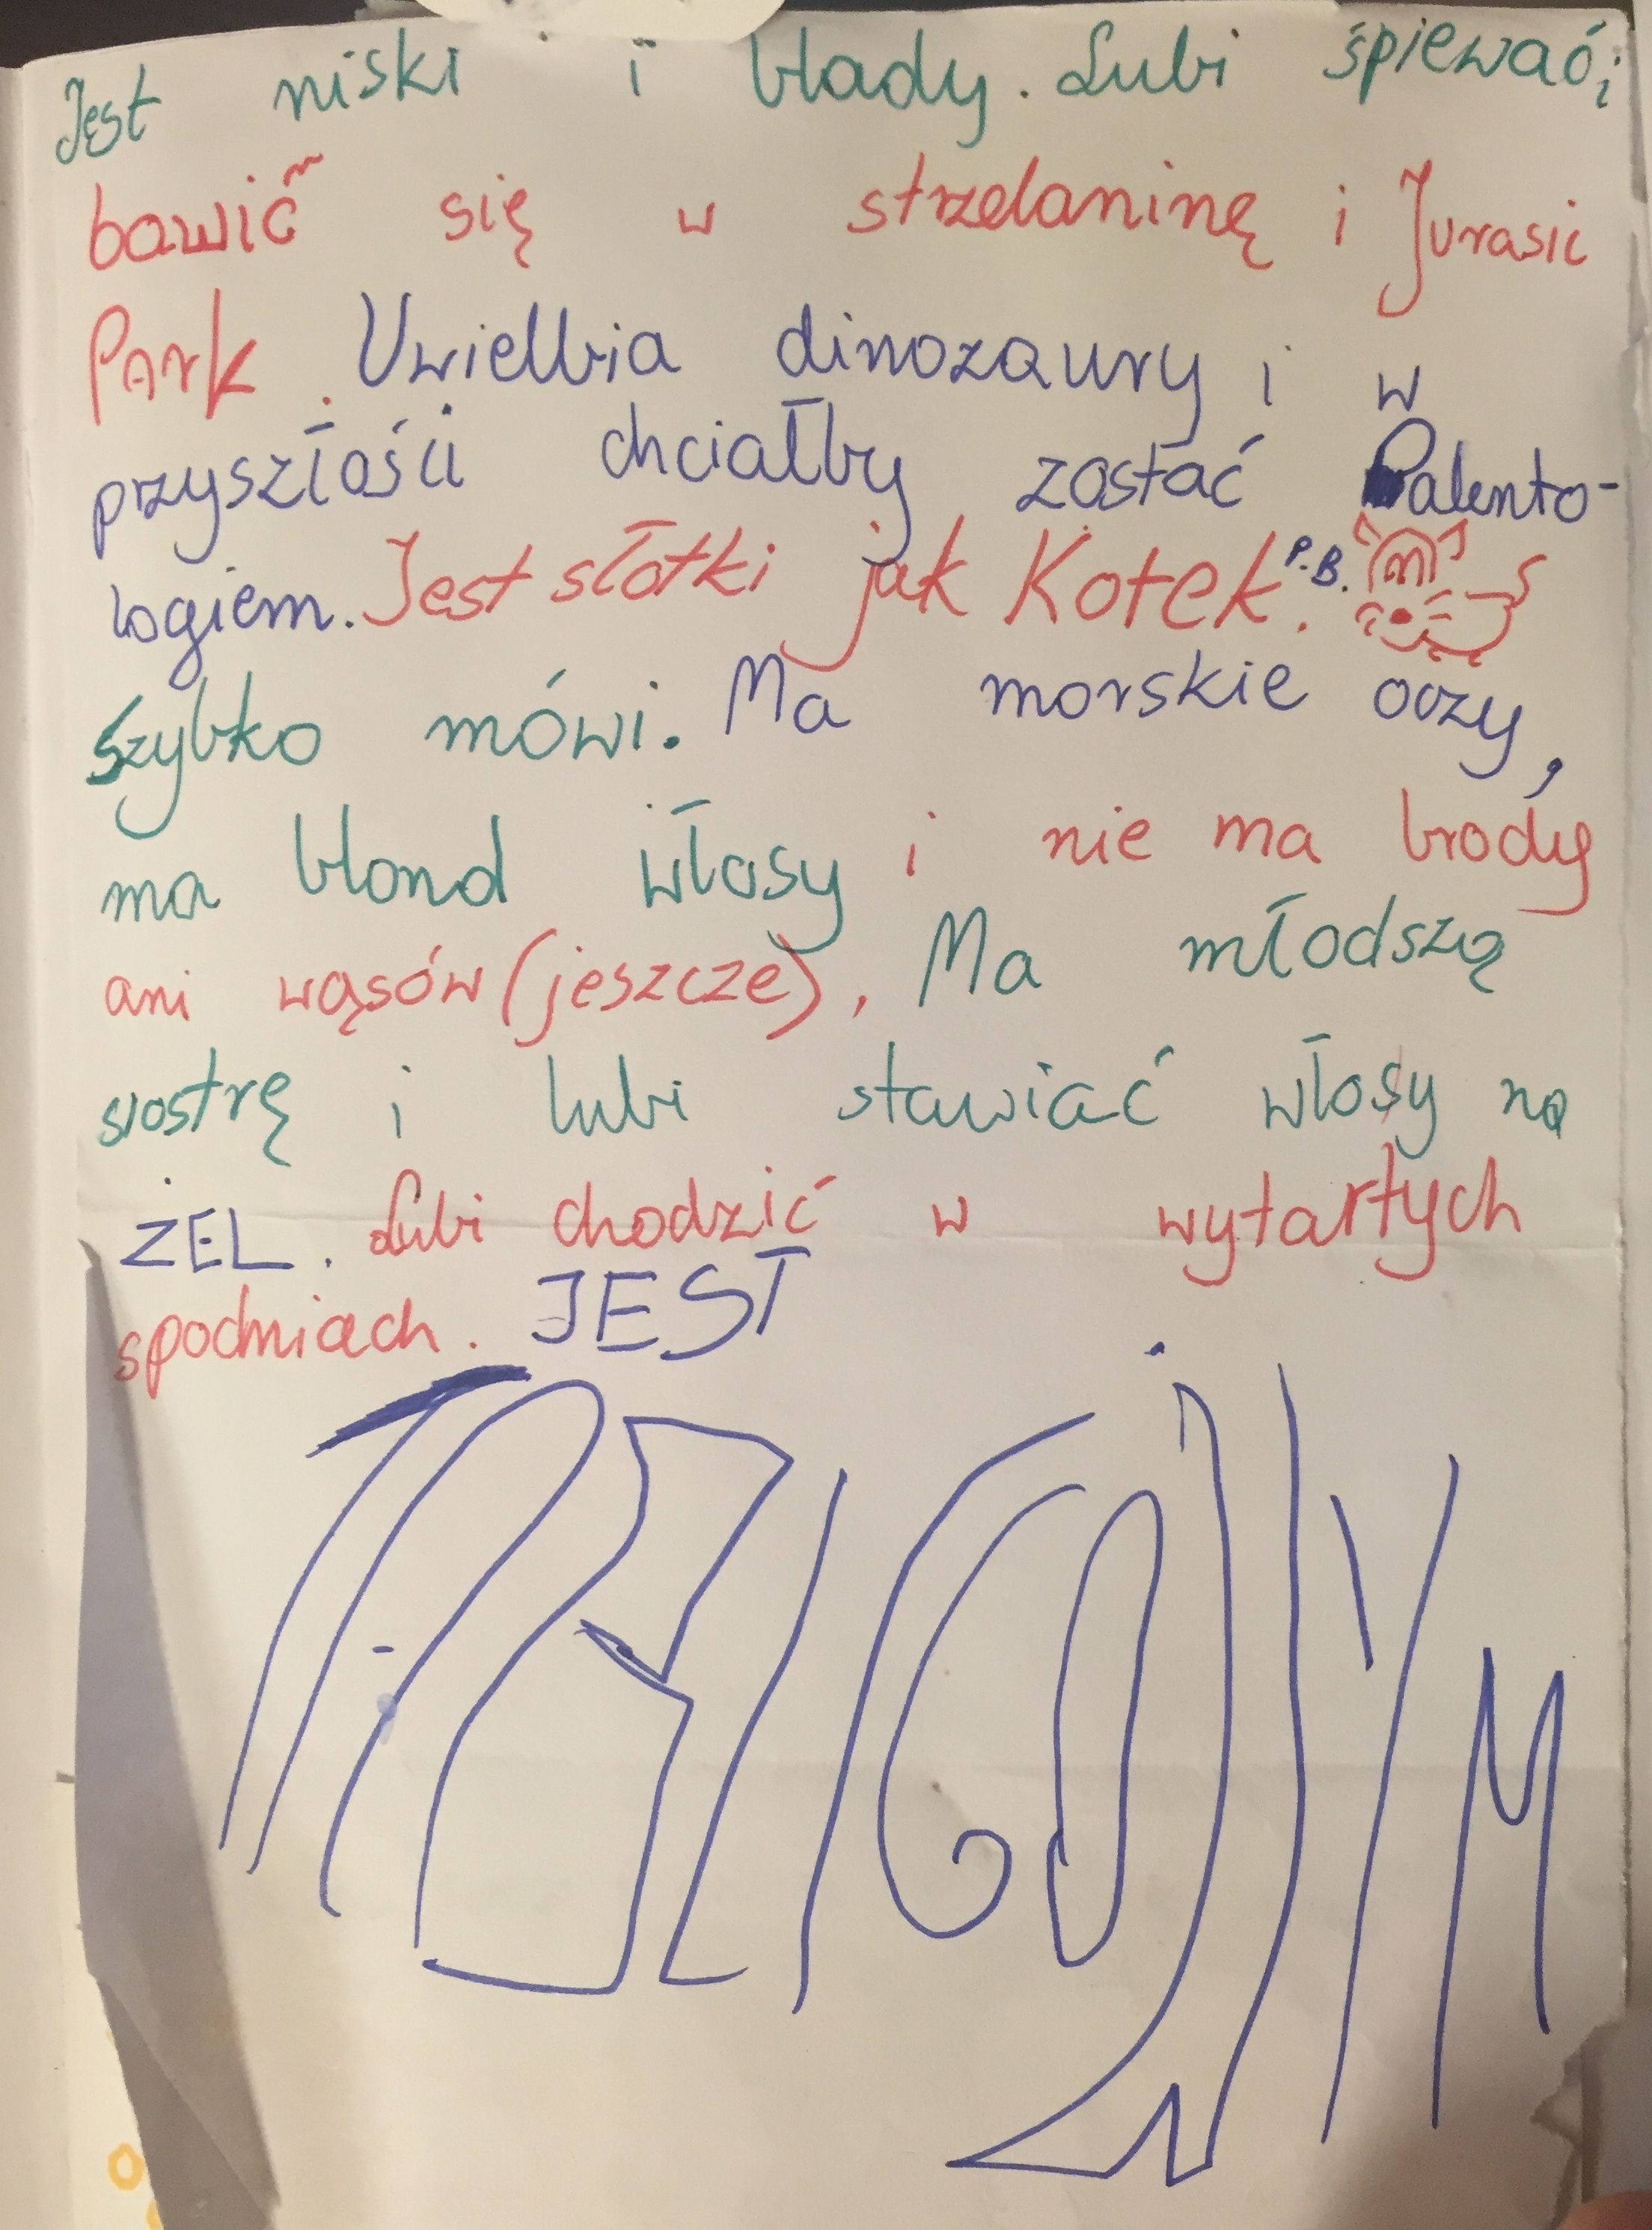 Jest niski i blady. Lubi śpiewać i
bawić się w strzelaninę i Jurasic
Park. Uwielbia dinozaury i w
przyszłości chciałby zostać Palento-
logiem. Jest słotki jak Kotek. P.B.
szybko mówi. Ma morskie oczy,
ma blond włosy i nie ma brody
ani wąsów (jeszcze), Ma młodszą
siostrę i lubi stawiać włosy na
ŻEL. Lubi chodzić w wytartych
spodniach. JEST